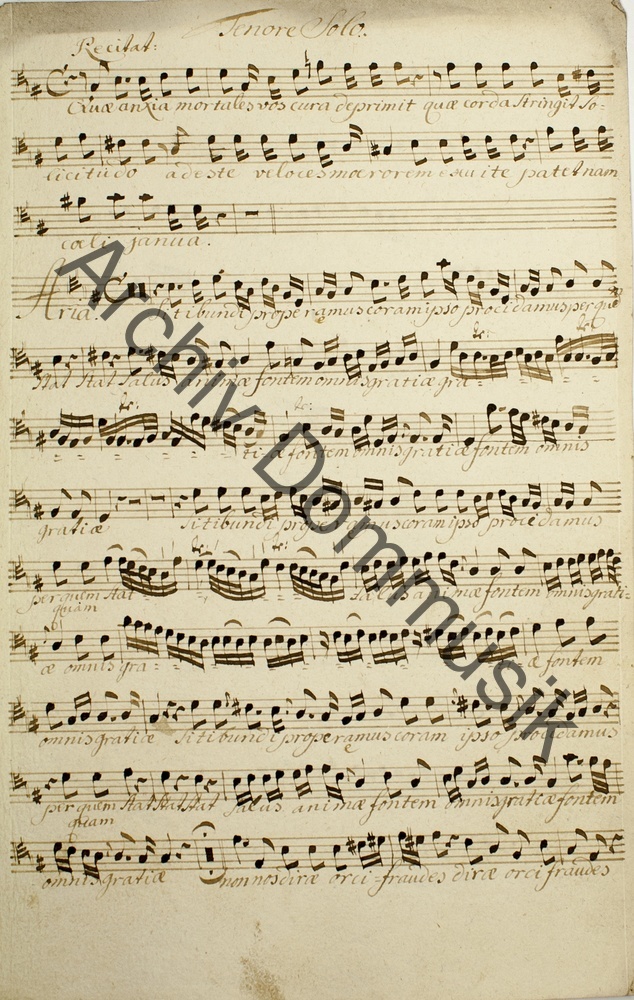 Tenore Solo.
Recitat:
Quæ anxia mortales vos cura deprimit quæ corda stringit so-
licitudo adeste veloces mœrorem exuite patet nam
cœli janua.
Aria. Sitibundi properamus coram ipso procidamus per quē
stat stat salus animæ fontem omnis gratiæ gra - - - -
- - - - - tiæ fontem omnis gratiæ fontem omnis
gratiæ sitibundi properamus coram ipso procidamus
per quem stat - - - - salus animæ fontem omnis grati-
quam
æ omnis gra - - - - - æ fontem
omnis gratiæ sitibundi properamus coram ipso procidamus
per quem stat stat stat salus animæ fontem omnis gratiæ fontem
quam
omnis gratiæ non nos diræ orci fraudes diræ orci fraudes
Archiv Dommusik